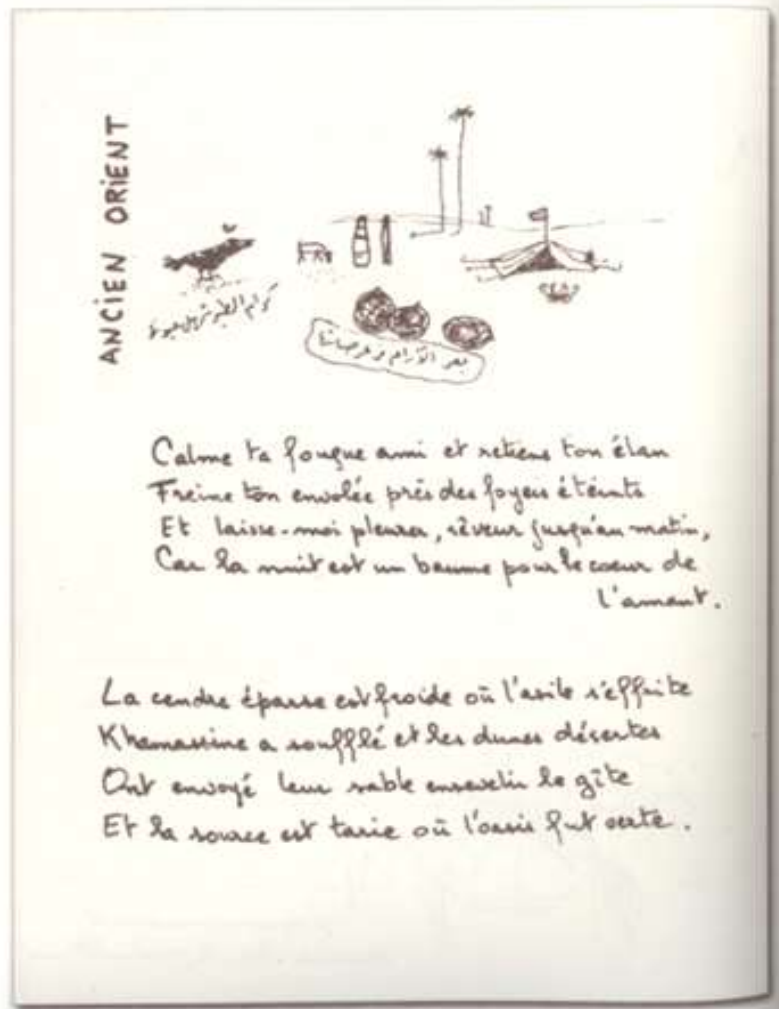 ANCIEN ORIENT
الطير
بعر الآرام في عرصاتها
Calme ta fougue ami et retiens ton élan
Freine ton envolée près des foyers éteints
Et laisse-moi pleurer, rêveur jusqu'au matin,
Car la nuit est un baume pour le coeur de
l'amant.
La cendre éparse est froide où l'asile s'effrite
Khamassine a soufflé et les dunes désertes
Ont envoyé leur sable ensevelir le gîte
Et la source est tarie où l'oasis fut verte.